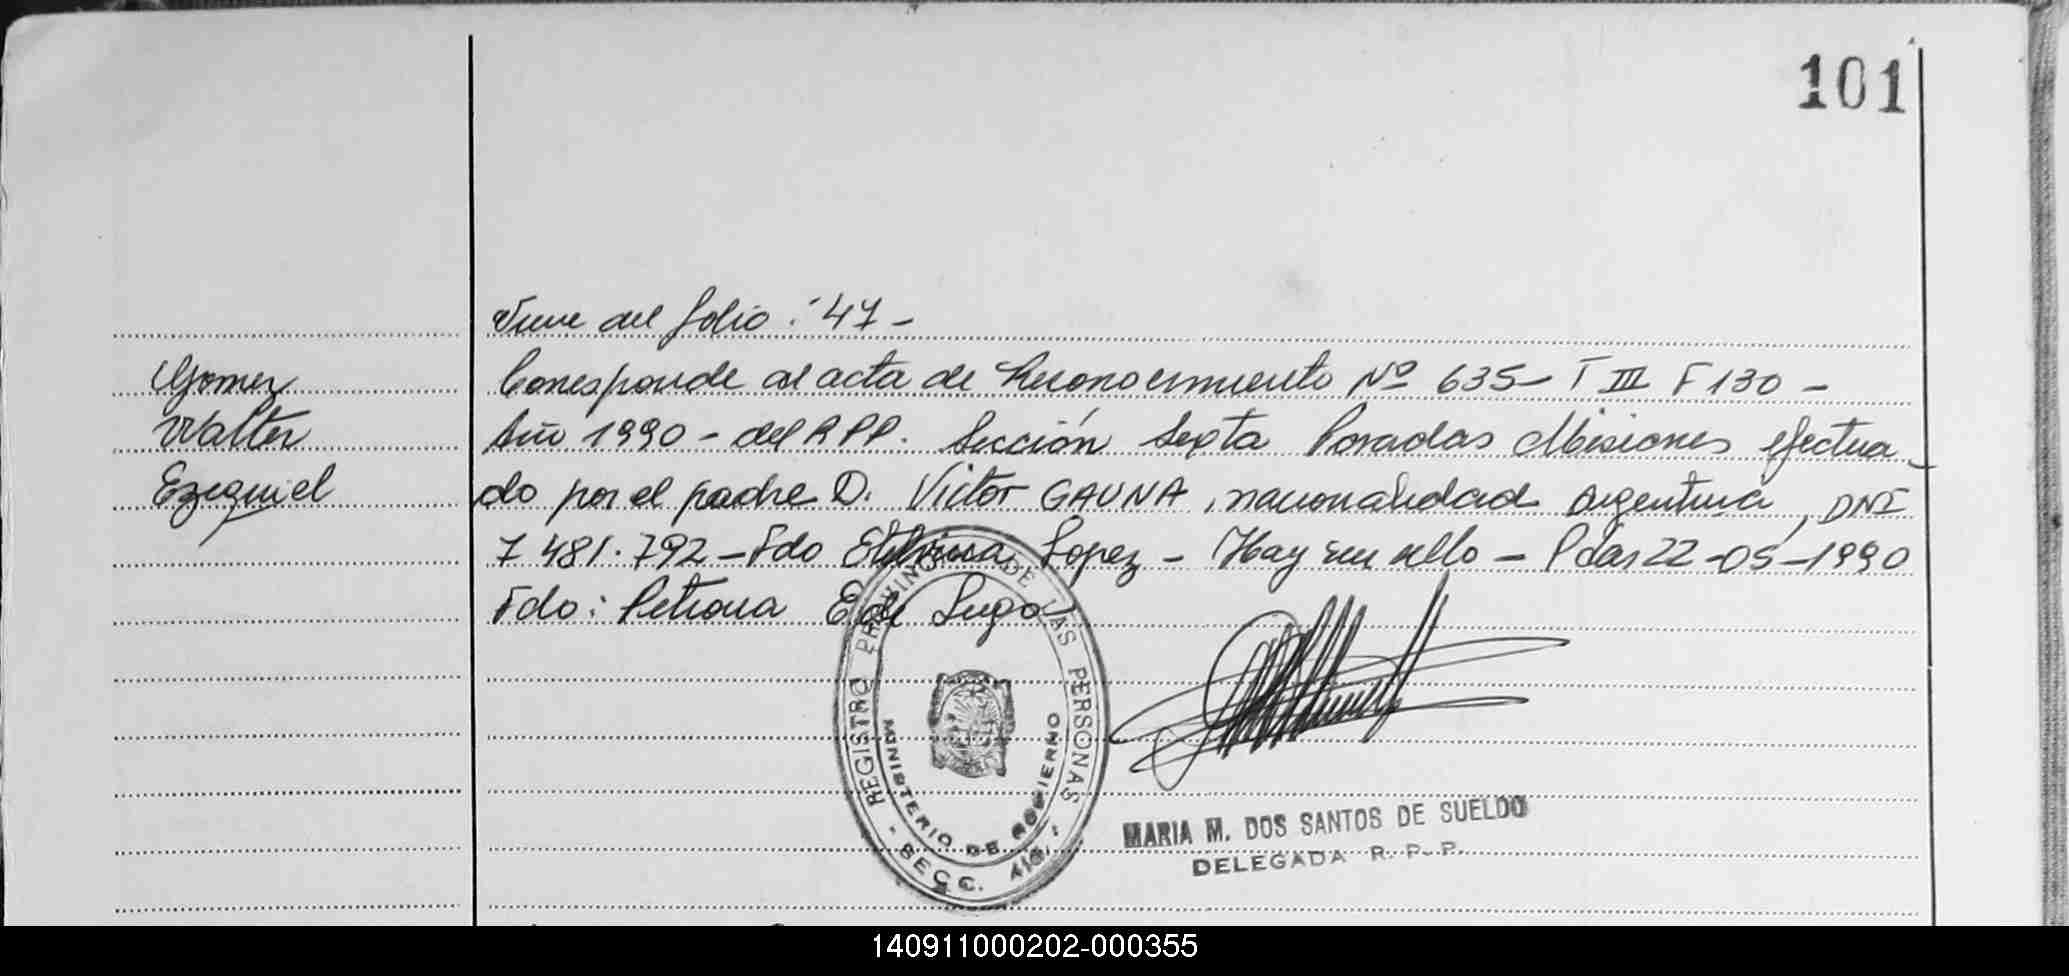 101
Viene del folio: 47-
Gomez
Walter
Ezequiel
Corresponde al acta de Reconocimiento Nº 635- T III F 130 -
Año 1990 - del RPP. Sección Sexta Posadas Misiones efectua-
do por el padre D. Victor GAUNA, nacionalidad Argentina, DNI
7 481.792 - Fdo Etelvina Lopez - Hay un sello - Pdas 22-05-1990
Fdo: Petrona E de Lugo
REGISTRO PROVINCIAL DE LAS PERSONAS
MINISTERIO DE GOBIERNO
- SECC.
MARIA M. DOS SANTOS DE SUELDO
DELEGADA R. P. P.
140911000202-000355